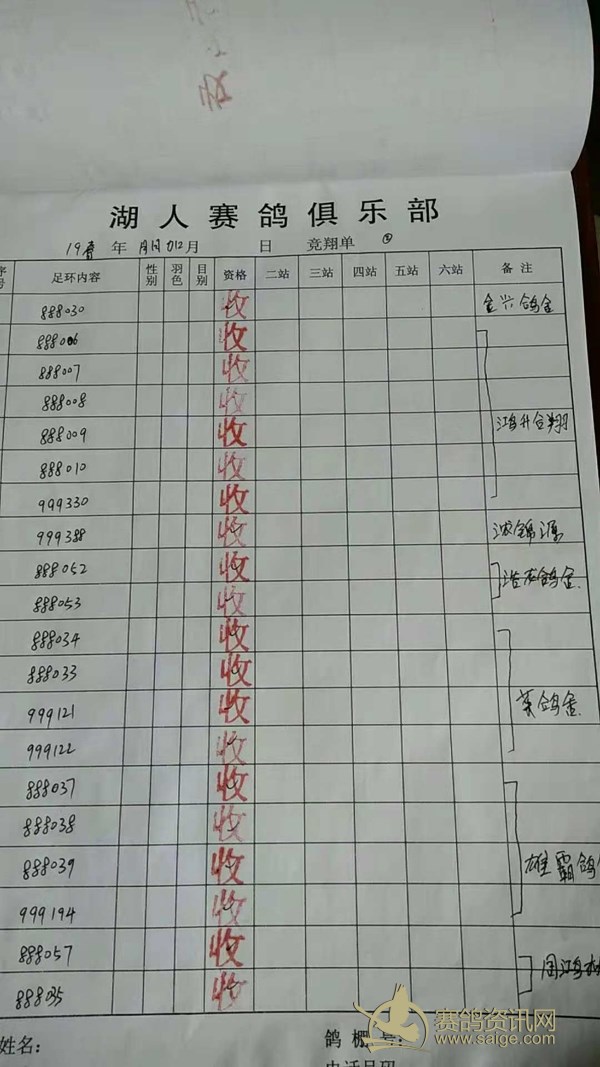 收
湖人赛鸽俱乐部
19春 年 月 日 竞翔单
序号 足环内容 性别 羽色 目别 资格 二站 三站 四站 五站 六站 备注
888030 收 金兴鸽舍
888006 收
888007 收
888008 收
888009 收 鸿升合翔
888010 收
999330 收
999388 收
888052 收
888053 收
888034 收
888033 收
999121 收 英鸽舍
999122 收
888037 收
888038 收
888039 收 雄霸鸽
999194 收
888057 收
888035 收
姓名: 鸽棚号:
电话号码
赛鸽资讯网
www.saige.com